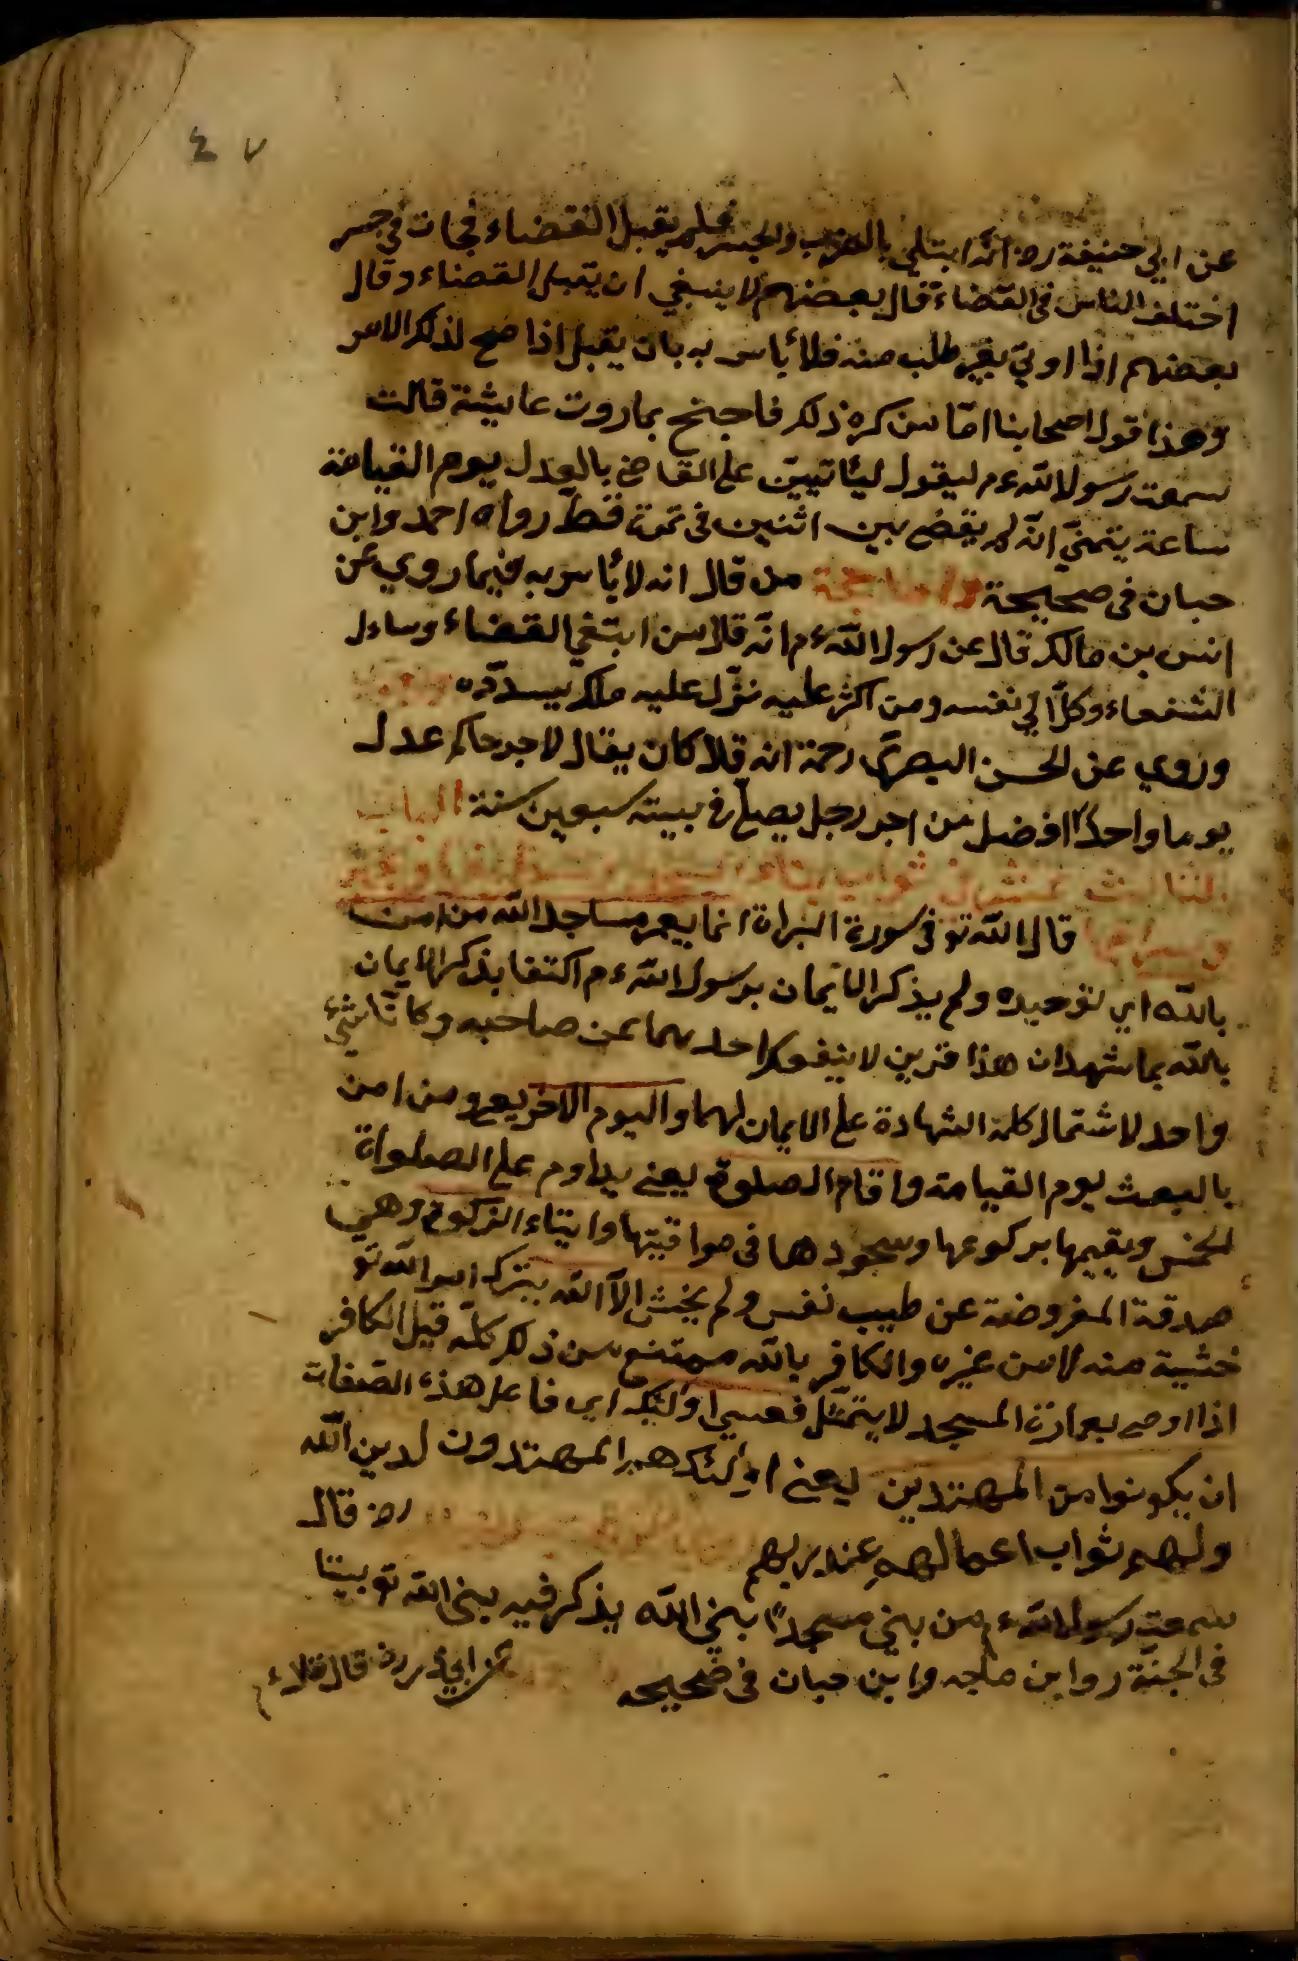 ٤٧
عن ابي حنيفة رض انه ابتلي بالضرب والحبس فلم يقبل القضاء فمات في حبس
اختلف الناس في القضاء قال بعضهم لا ينبغي ان يقبل القضاء وقال
بعضهم اذا اولي بغير طلب منه فلا بأس به بان يقبل اذا صح لذلك الامر
وهذا قول اصحابنا امّا من كره ذلك فاحتج بما روت عايشة قالت
سمعت رسول الله ءم ليقول ليأتيّن على القاضي بالعدل يوم القيامة
ساعة يتمنّي انّه لم يقض بين اثنين في تمرة قطّ رواه احمد وابن
حبان في صحيحة من قال انه لا بأس به فيما روي عن
انس بن مالك قال عن رسول الله ءم انّه قال من ابتغي القضاء وساءل
الشفعاء وكلّ الي نفسه ومن اكره عليه نزّل عليه ملك يسدّده
وروي عن الحسن البصري رحمة انه قال كان يقال لاجر حاكم عدل
يوما واحدًا افضل من اجر رجل يصلّي في بيته سبعين سنة الباب
الثالث عشر في ثواب بناء
قال الله تو في سورة البراة انما يعمر مساجد الله من امن
بالله اي توحيده ولم يذكر الايمان برسول الله ءم اكتفا بذكر الايمان
بالله بما شهد ان هذا قرين لا ينفك احدهما عن صاحبه وكانّا شيء
واحد لاشتمال كلمة الشهادة على الايمان لهما واليوم الاخر يعي ومن امن
بالبعث يوم القيامة واقام الصلوة يعني يداوم على الصلواة
الخمس ويقيمها بركوعها وسجودها في مواقيتها وايتاء الزكوة وهي
صدقة المفروضة عن طيب نفس ولم يخش الاّ الله بترك امر الله تو
خشية منه لا من غيره والكافر بالله ممتنع من ذلك كلّه قيل الكافر
اذا اوصى بعمارة المسجد لا يتمثّل فعسي اولئك اي فاعل هذه الصّفات
ان يكونوا من المهتدين يعني اولئك هم المهتدون لدين الله
ولهم ثواب اعمالهم عند ربهم رض قال
سمعت رسول الله ءم من بني مسجدًا بني الله يذكر فيه بني الله تو بيتا
في الجنّة روا ابن ماجه وابن حبان في صحيحه عن ابي ذر رض قال قال ءم